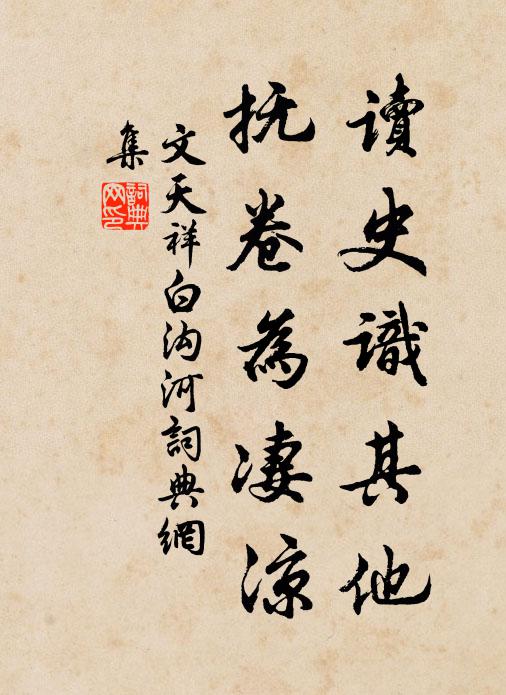 讀史識其他
抚卷為凄涼
文天祥白沟河詞典網
集
詞典網印